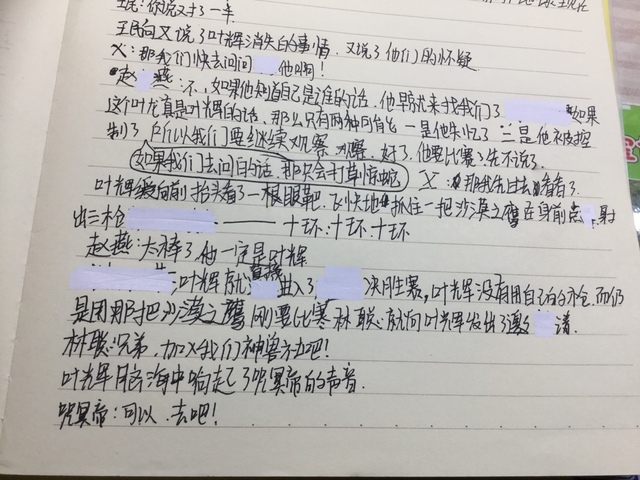 王民:你说对了一半
王民向又说了叶辉消失的事情,又说了他们的怀疑
X:那我们快去问问他啊!
赵燕:不,如果他知道自己是谁的话,他早就来找我们了 如果
这个叶龙真是叶辉的话,那么只有两种可能 一是他失忆了 二是他被控
制了 所以我们要继续观察 观察,好了,他要比赛了先不说了
如果我们去问的话,那只会打草惊蛇 X:那我先过去看看了
叶辉缓向前 抬头看了一眼靶,飞快地抓住一把沙漠之鹰 在身前 射
出三枪 ——十环 十环 十环
赵燕:太棒了他一定是叶辉
叶辉就直接进入了 决胜赛,叶辉没有用自己的分枪,而仍
是用那把沙漠之鹰 刚要比赛 林聪就向叶辉发出了邀请
林聪:兄弟,加入我们神兽动吧!
叶辉脑海中响起了咒冥帝的声音
咒冥帝:可以,去吧!